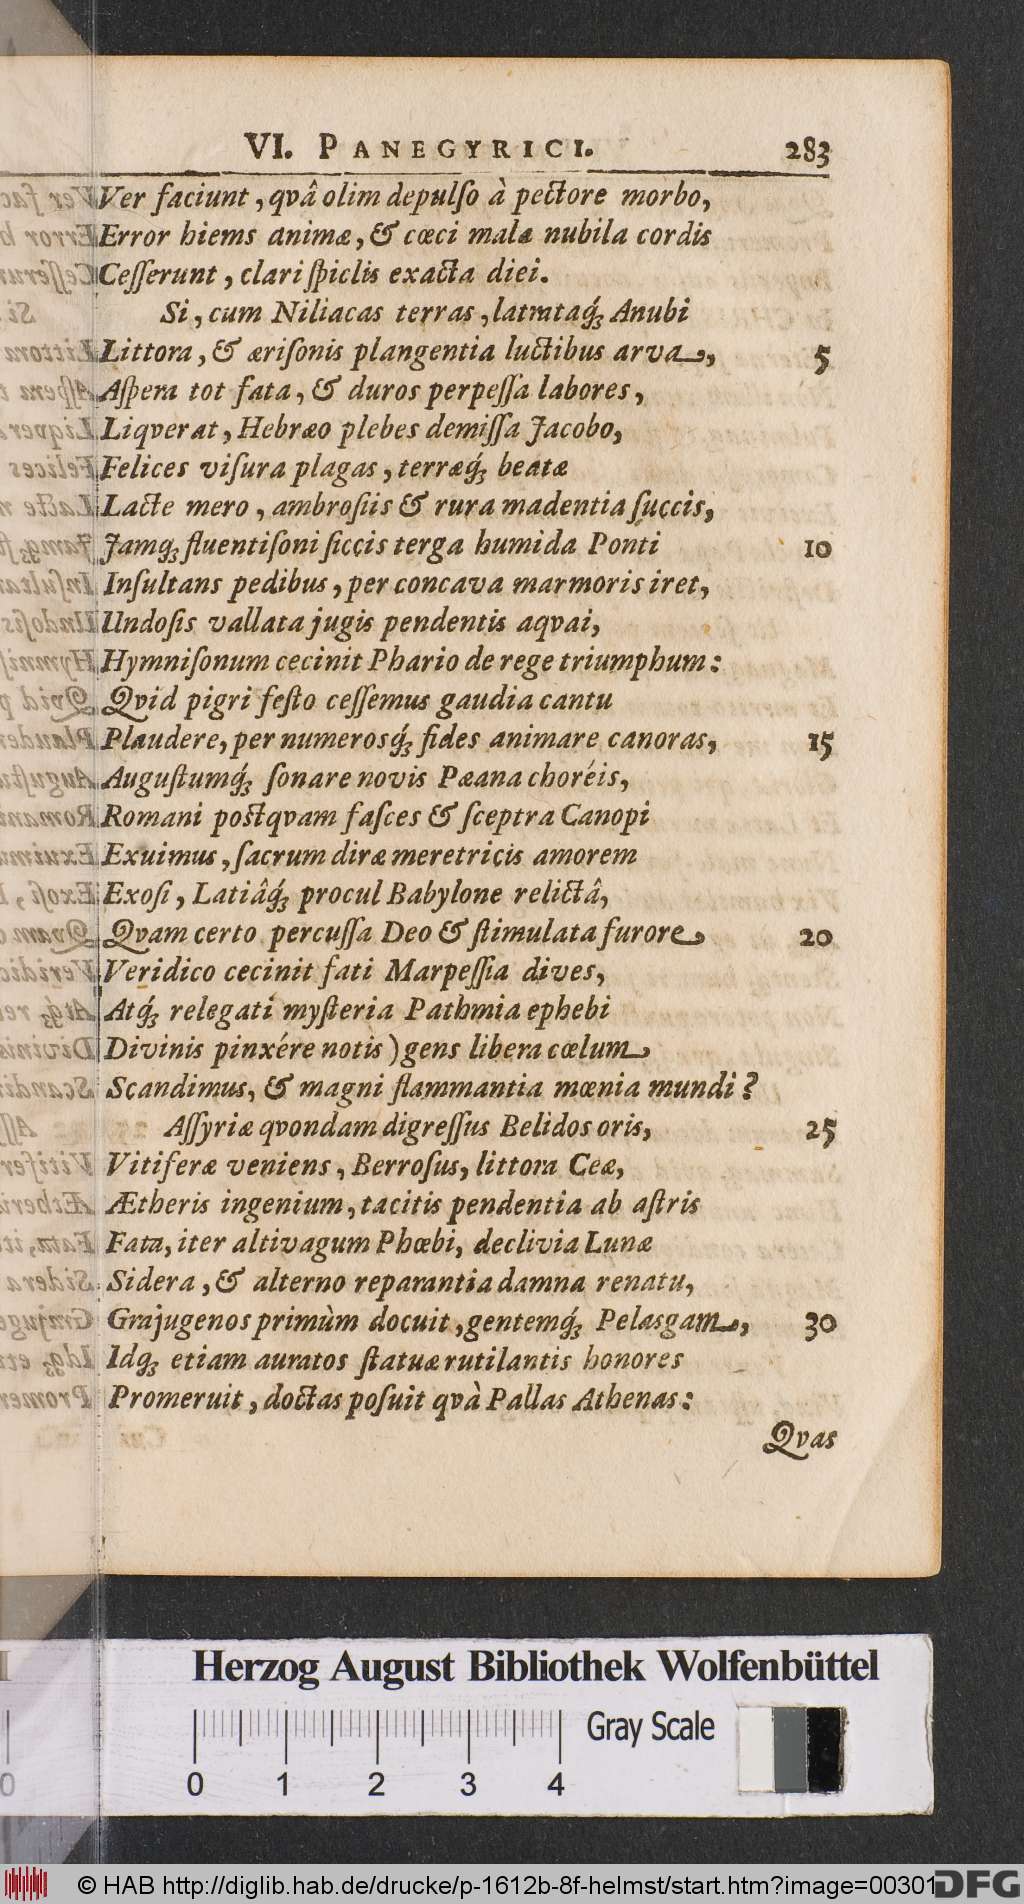 VI. PANEGYRICI. 283
Ver faciunt, qvâ olim depulſo à pectore morbo,
Error hiems animæ, & cœci mala nubila cordis
Ceſſerunt, clari ſpiclis exacta diei.
Si, cum Niliacas terras, latrataq́; Anubi
Littora, & æriſonis plangentia luctibus arva, 5
Aſpera tot fata, & duros perpeſſa labores,
Liqverat, Hebræo plebes demiſſa Jacobo,
Felices viſura plagas, terræq́; beatæ
Lacte mero, ambroſiis & rura madentia ſuccis,
Jamq; fluentiſoni ſiccis terga humida Ponti 10
Inſultans pedibus, per concava marmoris iret,
Undoſis vallata jugis pendentis aqvai,
Hymniſonum cecinit Phario de rege triumphum:
Qvid pigri feſto ceſſemus gaudia cantu
Plaudere, per numerosq́; fides animare canoras, 15
Auguſtumq́; ſonare novis Pæana choréis,
Romani postqvam faſces & ſceptra Canopi
Exuimus, ſacrum diræ meretricis amorem
Exoſi, Latiâq́; procul Babylone relictâ,
Qvam certo percuſſa Deo & ſtimulata furore 20
Veridico cecinit fati Marpeſſia dives,
Atq́; relegati myſteria Pathmia ephebi
Divinis pinxére notis) gens libera cœlum
Scandimus, & magni flammantia mœnia mundi?
Aſſyriæ qvondam digreſſus Belidos oris, 25
Vitiferæ veniens, Berroſus, littora Ceæ,
Ætheris ingenium, tacitis pendentia ab aſtris
Fata, iter altivagum Phœbi, declivia Lunæ
Sidera, & alterno reparantia damna renatu,
Grajugenos primùm docuit, gentemq́; Pelasgam, 30
Idq; etiam auratos ſtatuæ rutilantis honores
Promeruit, doctas poſuit qvà Pallas Athenas:
Qvas
Herzog August Bibliothek Wolfenbüttel
Gray Scale
0 1 2 3 4
© HAB http://diglib.hab.de/drucke/p-1612b-8f-helmst/start.htm?image=00301
DFG